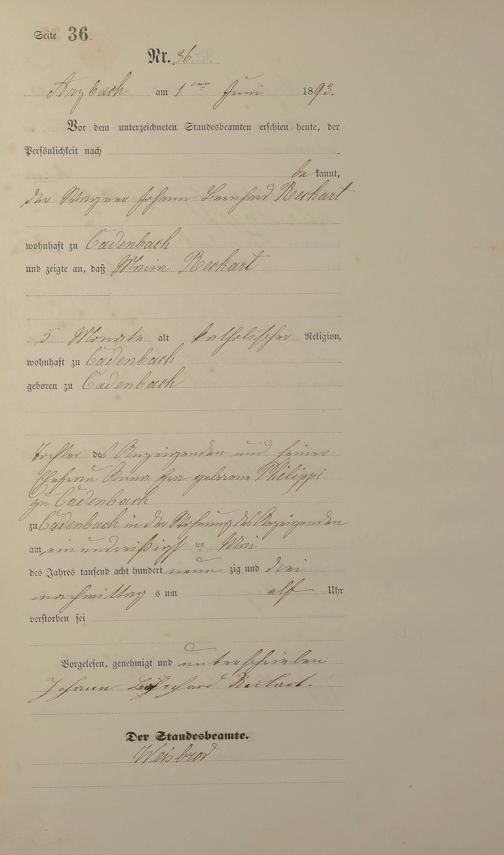 Seite 36
Nr. 36
Arzbach am 1 ten Juni 1893.
Vor dem unterzeichneten Standesbeamten erschien heute, der
Persönlichkeit nach
be kannt,
der Johann Bernhard Reckart
wohnhaft zu Cadenbach
und zeigte an, daß Maria Reckart
5 Monate alt katholischer Religion,
wohnhaft zu Cadenbach
geboren zu Cadenbach
Tochter des Anzeigenden und seiner
Ehefrau Anna geborene Philippi
zu Cadenbach
zu Cadenbach in der Wohnung des Anzeigenden
am einunddreißigsten Mai
des Jahres tausend acht hundert neun zig und drei
nachmittag s um elf Uhr
verstorben sei
Vorgelesen, genehmigt und unterschrieben
Johann Bernhard Reckart.
Der Standesbeamte.
Weisbrod